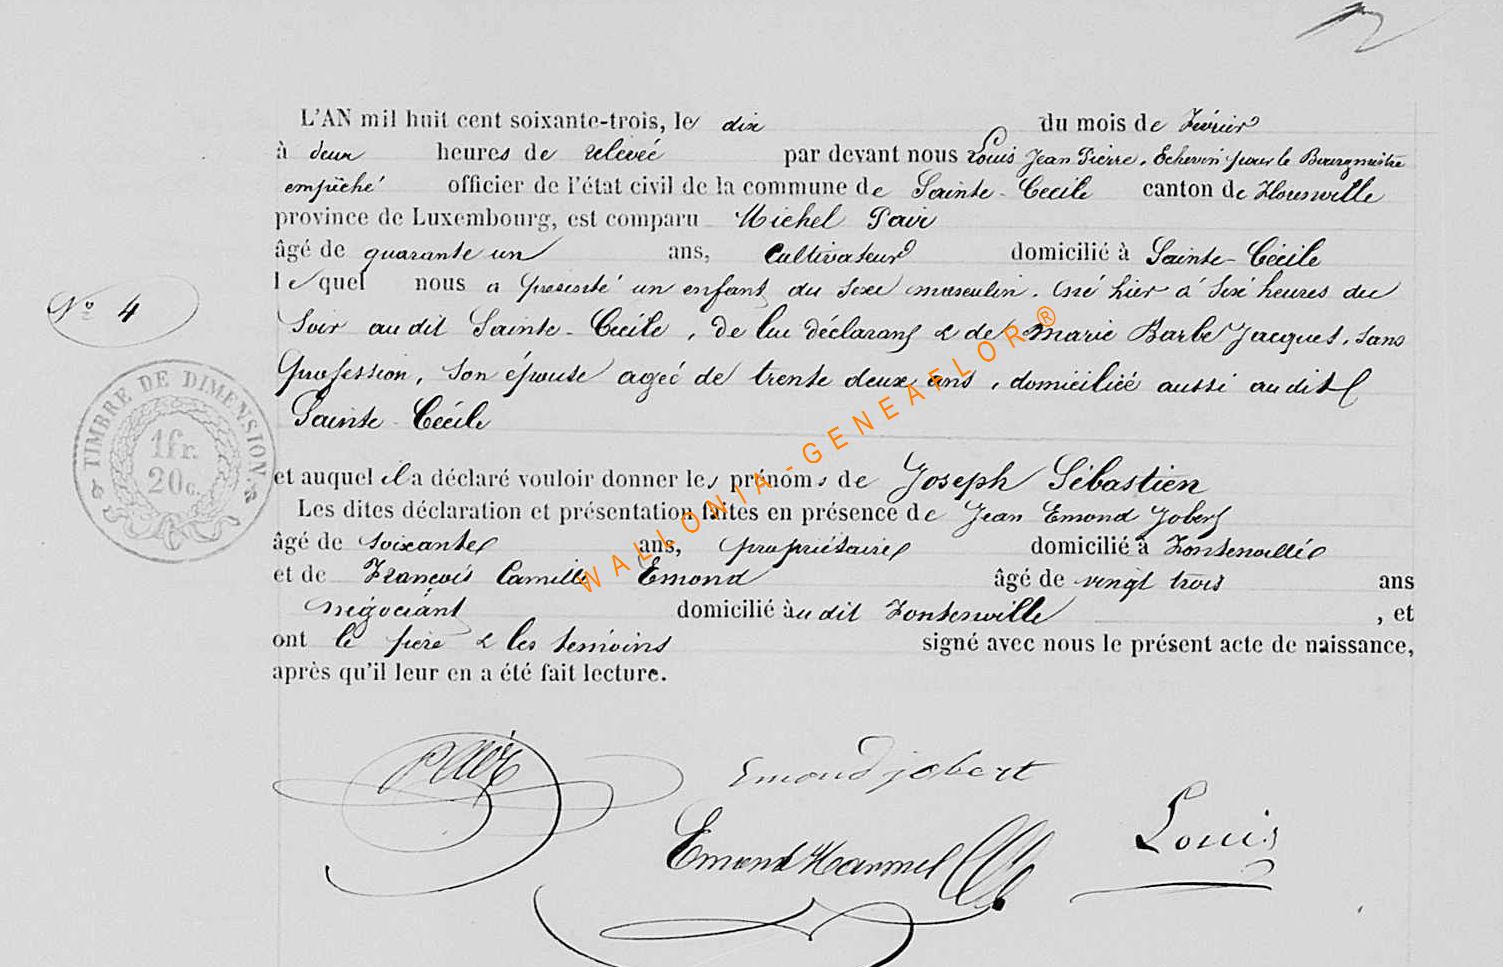 L'AN mil huit cent soixante-trois, le dix du mois de Février
à deux heures de relevée par devant nous Louis Jean Pierre, Echevin pour le Bourgmestre
empêché officier de l'état civil de la commune de Sainte-Cecile canton de Florenville
province de Luxembourg, est comparu Michel Pair
âgé de quarante un ans, Cultivateur domicilié à Sainte-Cécile
lequel nous a présenté un enfant du sexe masculin. né hier à six heures du
N° 4
soir audit Sainte-Cecile, de lui déclarant & de Marie Barbe Jacques, sans
profession, son épouse agée de trente deux ans, domiciliée aussi audit
Sainte-Cécile
TIMBRE DE DIMENSION.
1 fr.
20 c.
et auquel il a déclaré vouloir donner les prénoms de Joseph Sébastien
Les dites déclaration et présentation faites en présence de Jean Emond Jobert
âgé de soixante ans, propriétaire domicilié à Fontenoille
et de François Camille Emond âgé de vingt trois ans
négociant domicilié audit Fontenoille, et
ont le père & les témoins signé avec nous le présent acte de naissance,
après qu'il leur en a été fait lecture.
WALLONIA-GENEAFLOR®
Pair
Emond jobert
Emond Hanmel
Louis